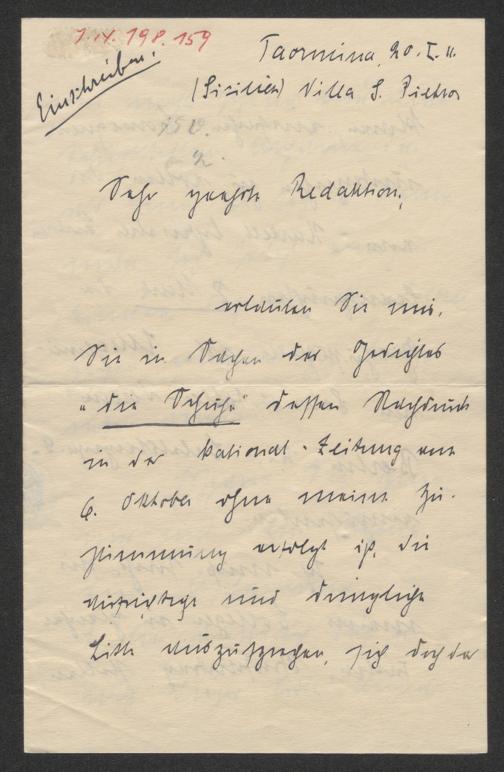 7. IX. 198. 159
Einschreiben!
Taormina, 20. I. 11.
(Sizilien) Villa S. Pietro
Sehr geehrte Redaktion,
erlauben Sie mir,
Sie in Sachen des Gedichtes
"die Schuhe" dessen Nachdruck
in der National-Zeitung am
6. Oktober ohne meine Zu-
stimmung erfolgt ist, die
aufrichtige und dringliche
Bitte auszusprechen, sich doch der